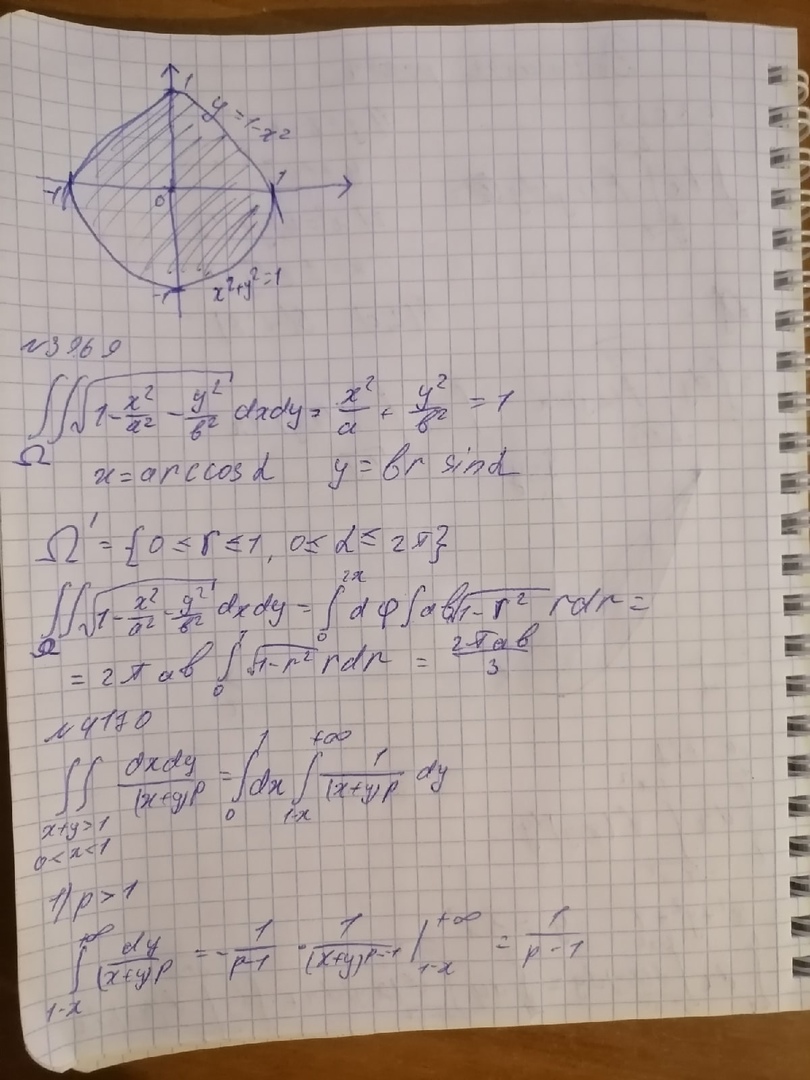 1
y = 1-x2
-1 0 1
-1 x²+y²=1
№3969
∬√(1-x²/a²-y²/b²) dxdy = x²/a + y²/b² = 1
Ω
x = arccosα y = br sinα
Ω' = {0 ≤ r ≤ 1, 0 ≤ α ≤ 2π}
∬_Ω √(1-x²/a²-y²/b²) dxdy = ∫₀^{2π} dφ ∫ab√(1-r²) rdr =
= 2πab ∫₀¹ √(1-r²) rdr = 2πab/3
№4170
∬ dxdy/(x+y)p = ∫₀¹ dx ∫_{1-x}^{+∞} 1/(x+y)p dy
x+y>1
0<x<1
1) p>1
∫_{1-x}^{+∞} dy/(x+y)p = -1/(p-1) · 1/(x+y)^{p-1} |_{1-x}^{+∞} = 1/(p-1)